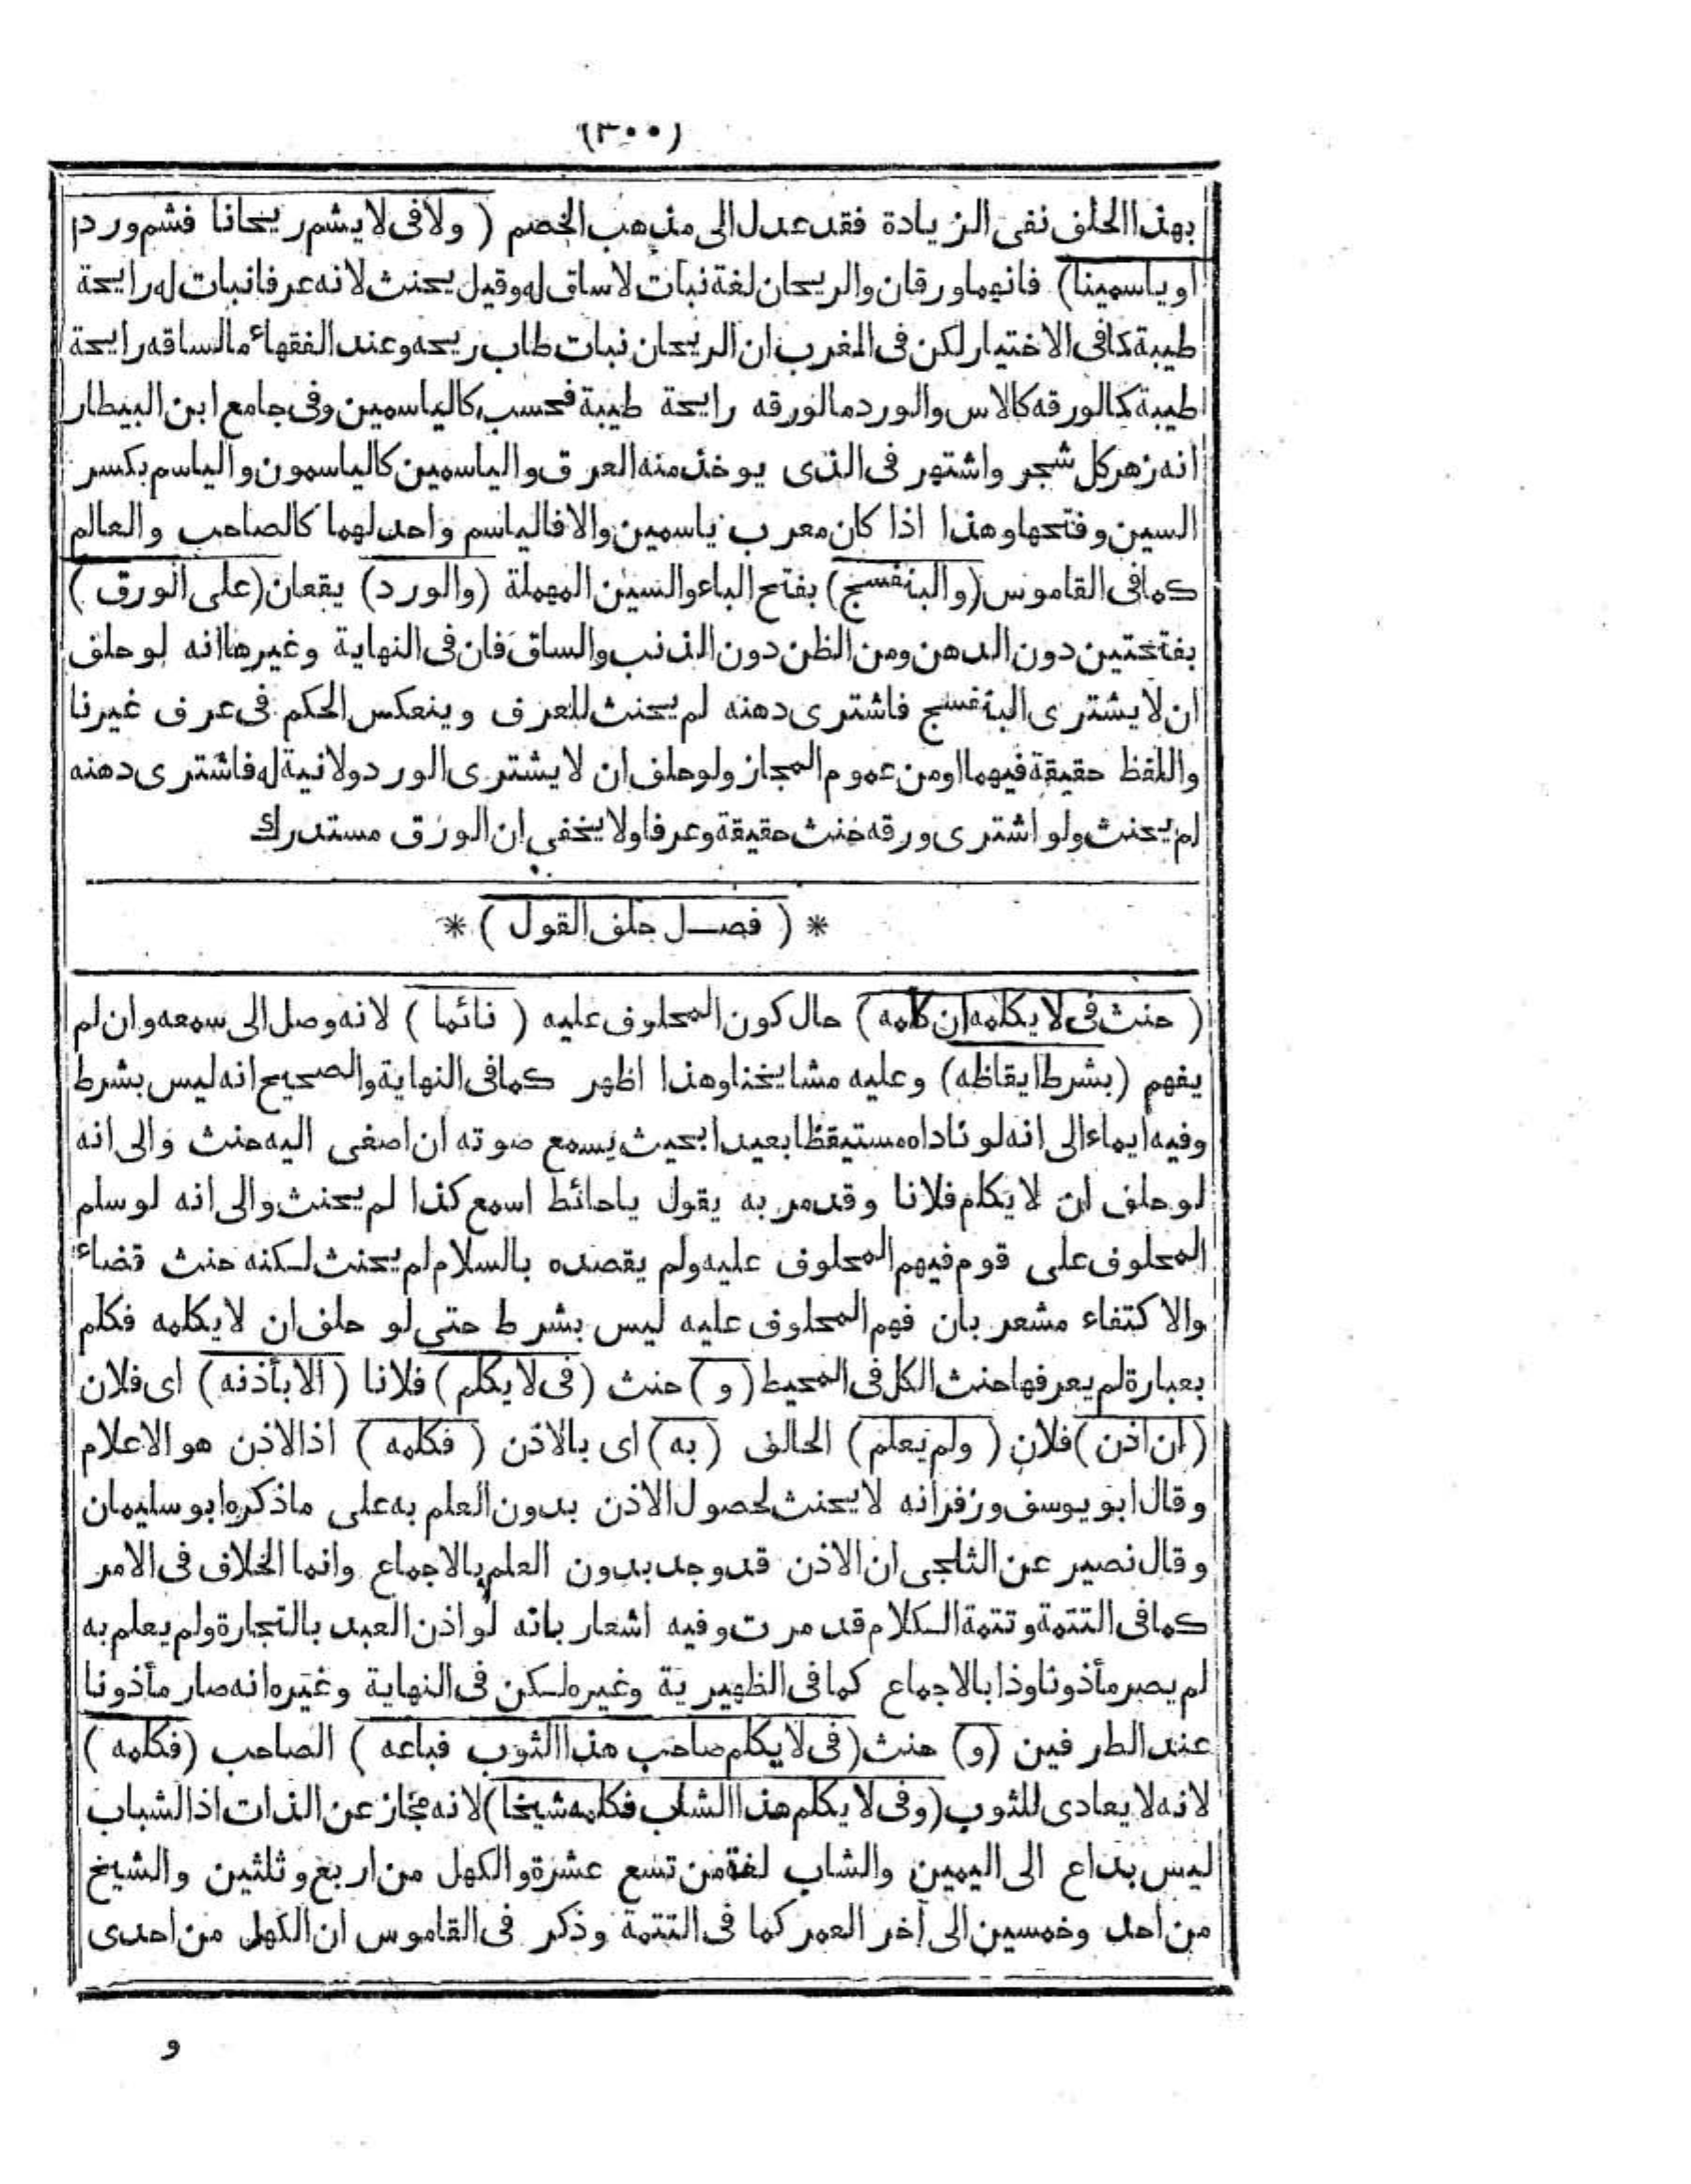 (٣٠٠)
بهذا الحلف نفى الزيادة فقد عدل الى مذهب الخصم ( ولا فى لا يشم ريحانا فشم وردا
او ياسمينا ) فانهما ورقان والريحان لغة نبات لا ساق له وقيل يحنث لانه عرفا نبات له رايحة
طيبة كما فى الاختيار لكن فى المغرب ان الريحان نبات طاب ريحه وعند الفقهاء ما لساقه رايحة
طيبة كما لورقه كالاس والورد ما لورقه رايحة طيبة فحسب كالياسمين وفى جامع ابن البيطار
انه زهر كل شجر واشتهر فى الذى يوخذ منه العرق والياسمين كالياسمون والياسم بكسر
السين وفتحها وهذا اذا كان معرب ياسمين والا فالياسم واحد لهما كالصاحب والعالم
كما فى القاموس ( والبنفسج ) بفتح الباء والسين المهملة ( والورد ) يقعان ( على الورق )
بفتحتين دون الدهن ومن الظن دون الذنب والساق فان فى النهاية وغيرها انه لو حلف
ان لا يشترى البنفسج فاشترى دهنه لم يحنث للعرف وينعكس الحكم فى عرف غيرنا
واللفظ حقيقة فيهما او من عموم المجاز ولو حلف ان لا يشترى الورد ولا نية له فاشترى دهنه
لم يحنث ولو اشترى ورقه حنث حقيقة وعرفا ولا يخفى ان الورق مستدرك
* ( فصل حلف القول ) *
( حنث فى لا يكلمه ان كلمه ) حال كون المحلوف عليه ( نائما ) لانه وصل الى سمعه وان لم
يفهم ( بشرط ايقاظه ) وعليه مشايخنا وهذا اظهر كما فى النهاية والصحيح انه ليس بشرط
وفيه ايماء الى انه لو ناداه مستيقظا بعيدا بحيث يسمع صوته ان اصغى اليه حنث والى انه
لو حلف ان لا يكلم فلانا وقد مر به يقول ياحائط اسمع كذا لم يحنث والى انه لو سلم
المحلوف على قوم فيهم المحلوف عليه ولم يقصده بالسلام لم يحنث لكنه حنث قضاء
والاكتفاء مشعر بان فهم المحلوف عليه ليس بشرط حتى لو حلف ان لا يكلمه فكلم
بعبارة لم يعرفها حنث الكل فى المحيط ( و ) حنث ( فى لا يكلم ) فلانا ( الا بأذنه ) اى فلان
( ان اذن ) فلان ( ولم يعلم ) الحالف ( به ) اى بالاذن ( فكلمه ) اذ الاذن هو الاعلام
وقال ابو يوسف وزفر انه لا يحنث لحصول الاذن بدون العلم به على ما ذكره ابو سليمان
وقال نصير عن الثلجى ان الاذن قد وجد بدون العلم بالاجماع وانما الخلاف فى الامر
كما فى التتمة وتتمة الكلام قد مرت وفيه اشعار بانه لو اذن العبد بالتجارة ولم يعلم به
لم يصر مأذونا وذا بالاجماع كما فى الظهيرية وغيره لكن فى النهاية وغيره انه صار مأذونا
عند الطرفين ( و ) حنث ( فى لا يكلم صاحب هذا الثوب فباعه ) الصاحب ( فكلمه )
لانه لا يعادى للثوب ( وفى لا يكلم هذا الشاب فكلمه شيخا ) لانه مجاز عن الذات اذ الشباب
ليس بداع الى اليمين والشاب لغة من تسع عشرة والكهل من اربع وثلثين والشيخ
من احد وخمسين الى آخر العمر كما فى التتمة وذكر فى القاموس ان الكهل من احدى
و